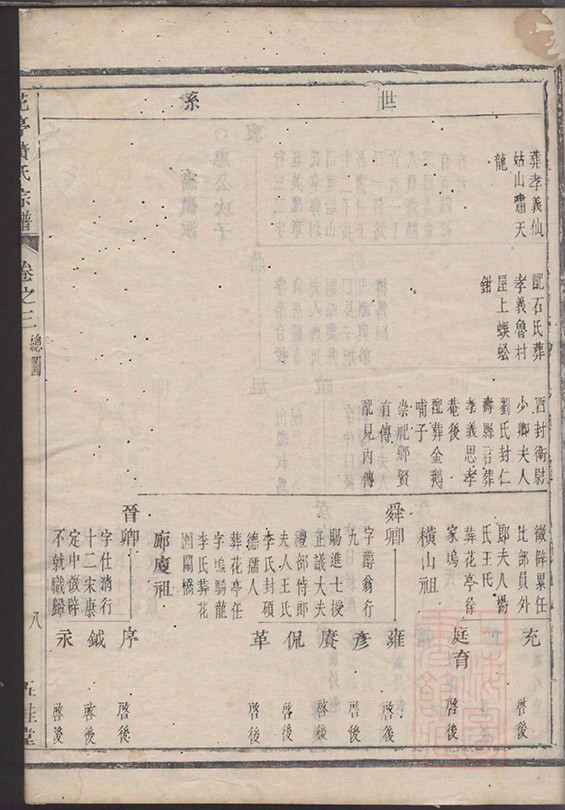 世
系
葬孝義仙
姑山嘯天
龍
配石氏葬
孝義魯村
屋上蜈蚣
鉗
酉封衛尉
少卿夫人
劉氏封仁
壽縣君葬
孝義思孝
菴後
配葬金鵝
哺子
崇祀鄉賢
有傳
配見內傳
徵辟累任
比部員外
郎夫人楊
氏王氏
葬花亭徐
家塢
橫山祖
舜卿
字醇翁行
九
賜進士授
正議大夫
禮部侍郎
夫人王氏
李氏封碩
德孺人
葬花亭任
字塢騎龍
李氏葬花
園閘橋
廊廈祖
晉卿
字仕清行
十二宋康
定中徵辟
不就職歸
充
啓後
庭育
啓後
雍
啓後
彥
啓後
賡
啓後
侃
啓後
革
啓後
序
啓後
鉞
啓後
永
啓後
宗譜
卷之三
總圖
八
五桂堂